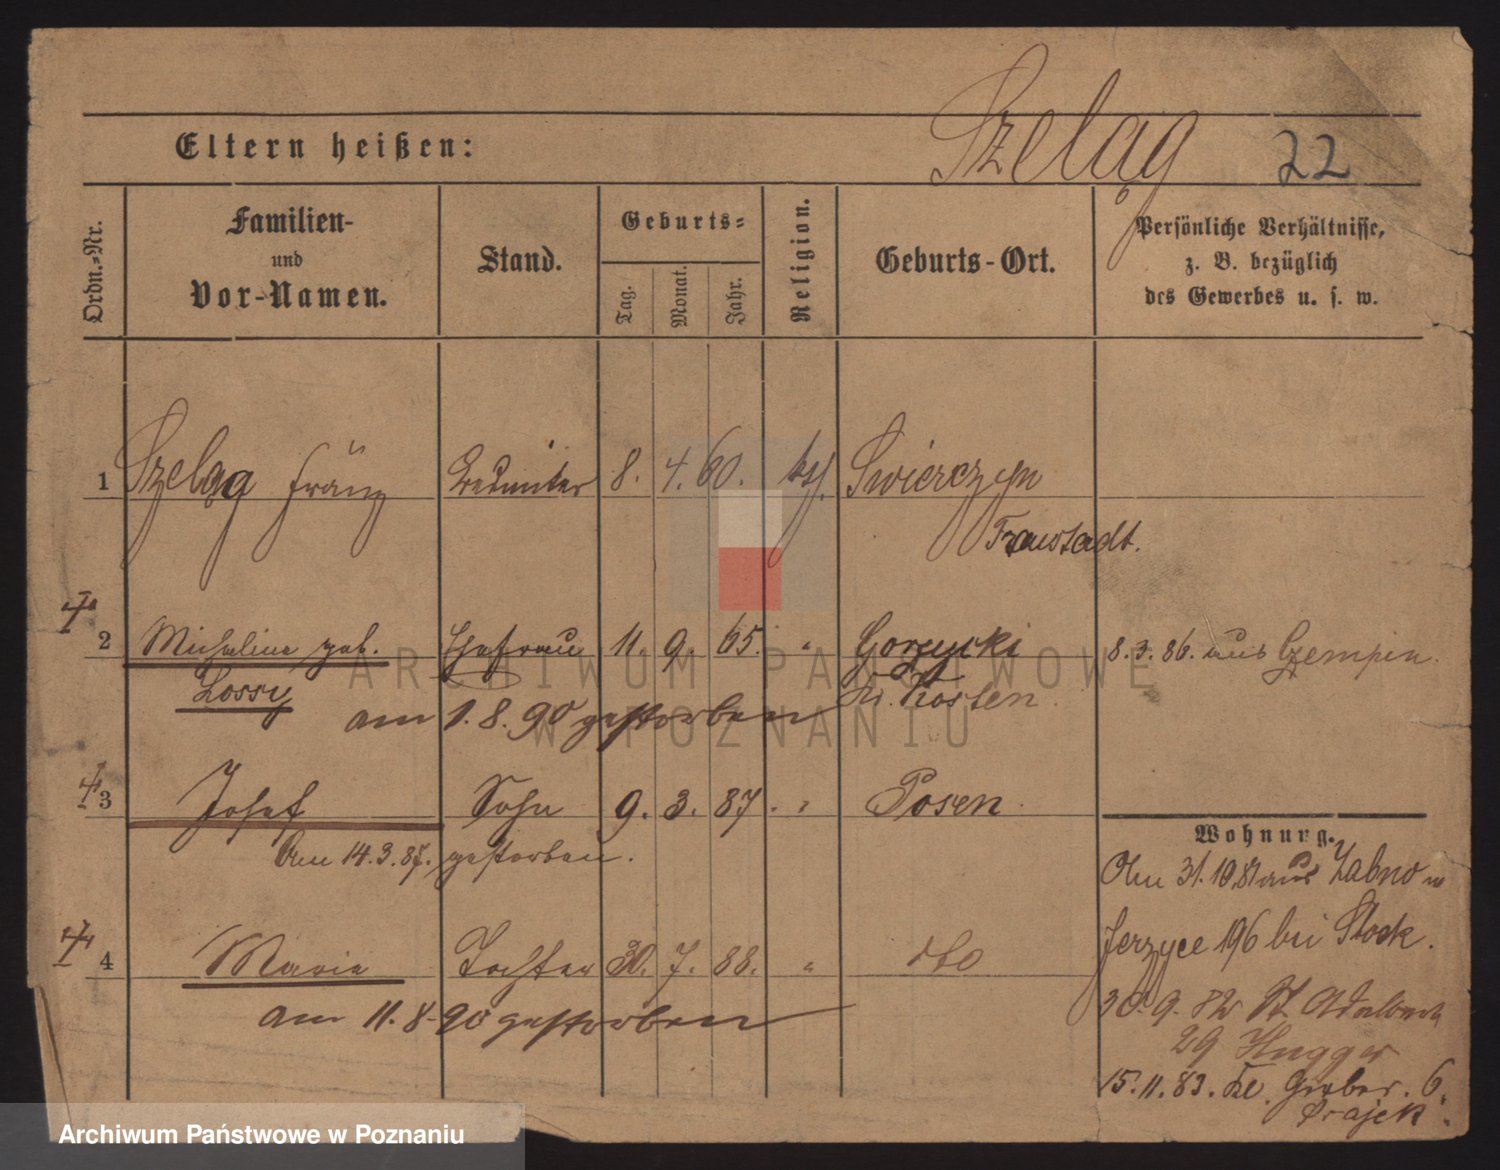 Szeląg 22
Eltern heißen:
Ordn.-Nr.
Familien-
und
Vor-Namen.
Stand.
Geburts-
Tag.
Monat.
Jahr.
Religion.
Geburts-Ort.
Persönliche Verhältnisse,
z. B. bezüglich
des Gewerbes u. s. w.
1 Szeląg Franz 8. 4. 60. kath. Swierczyn
Fraustadt.
2 Micheline geb. Ehefrau 11. 9. 65. " Goryczki 8. 3. 86. aus Czempin.
Lossy Kr. Kosten.
am 1. 8. 90 gestorben
3 Josef Sohn 9. 3. 87. " Posen
Am 14. 3. 87. gestorben.
4 Marie Tochter 30. 7. 88. " dto
am 11. 8. 90 gestorben
Wohnung.
Am 31. 10. 81 aus Zabno n
Jerzyce 196 bei Stock.
30. 9. 82 St. Adalbert
29 Hugger
15. 11. 83. Kl. Gerber. 6.
ARCHIWUM PAŃSTWOWE
W POZNANIU
Archiwum Państwowe w Poznaniu